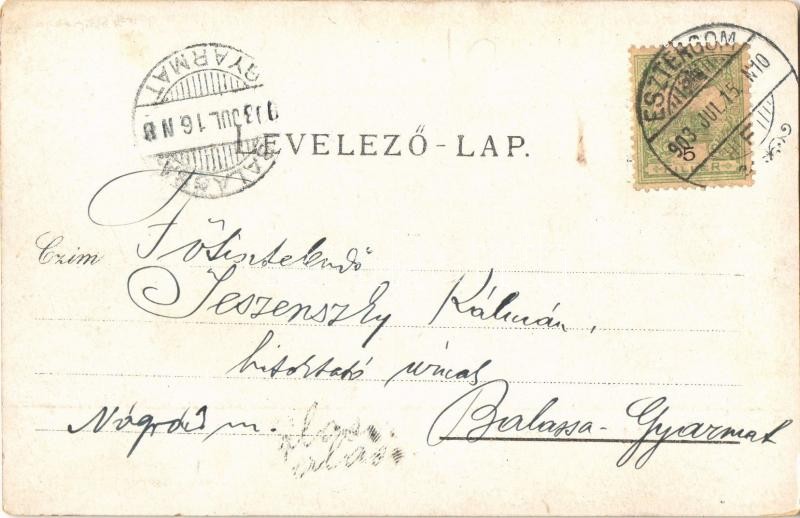 GYARMAT
903 JUL. 16 N 8
BALASSA
ESZTERGOM
903 JUL. 15. N10
5
LEVELEZŐ-LAP.
Czim
Főtisztelendő
Jeszenszky Kálmán,
hitoktató úrnak
Nógrád m.
Balassa-Gyarmat